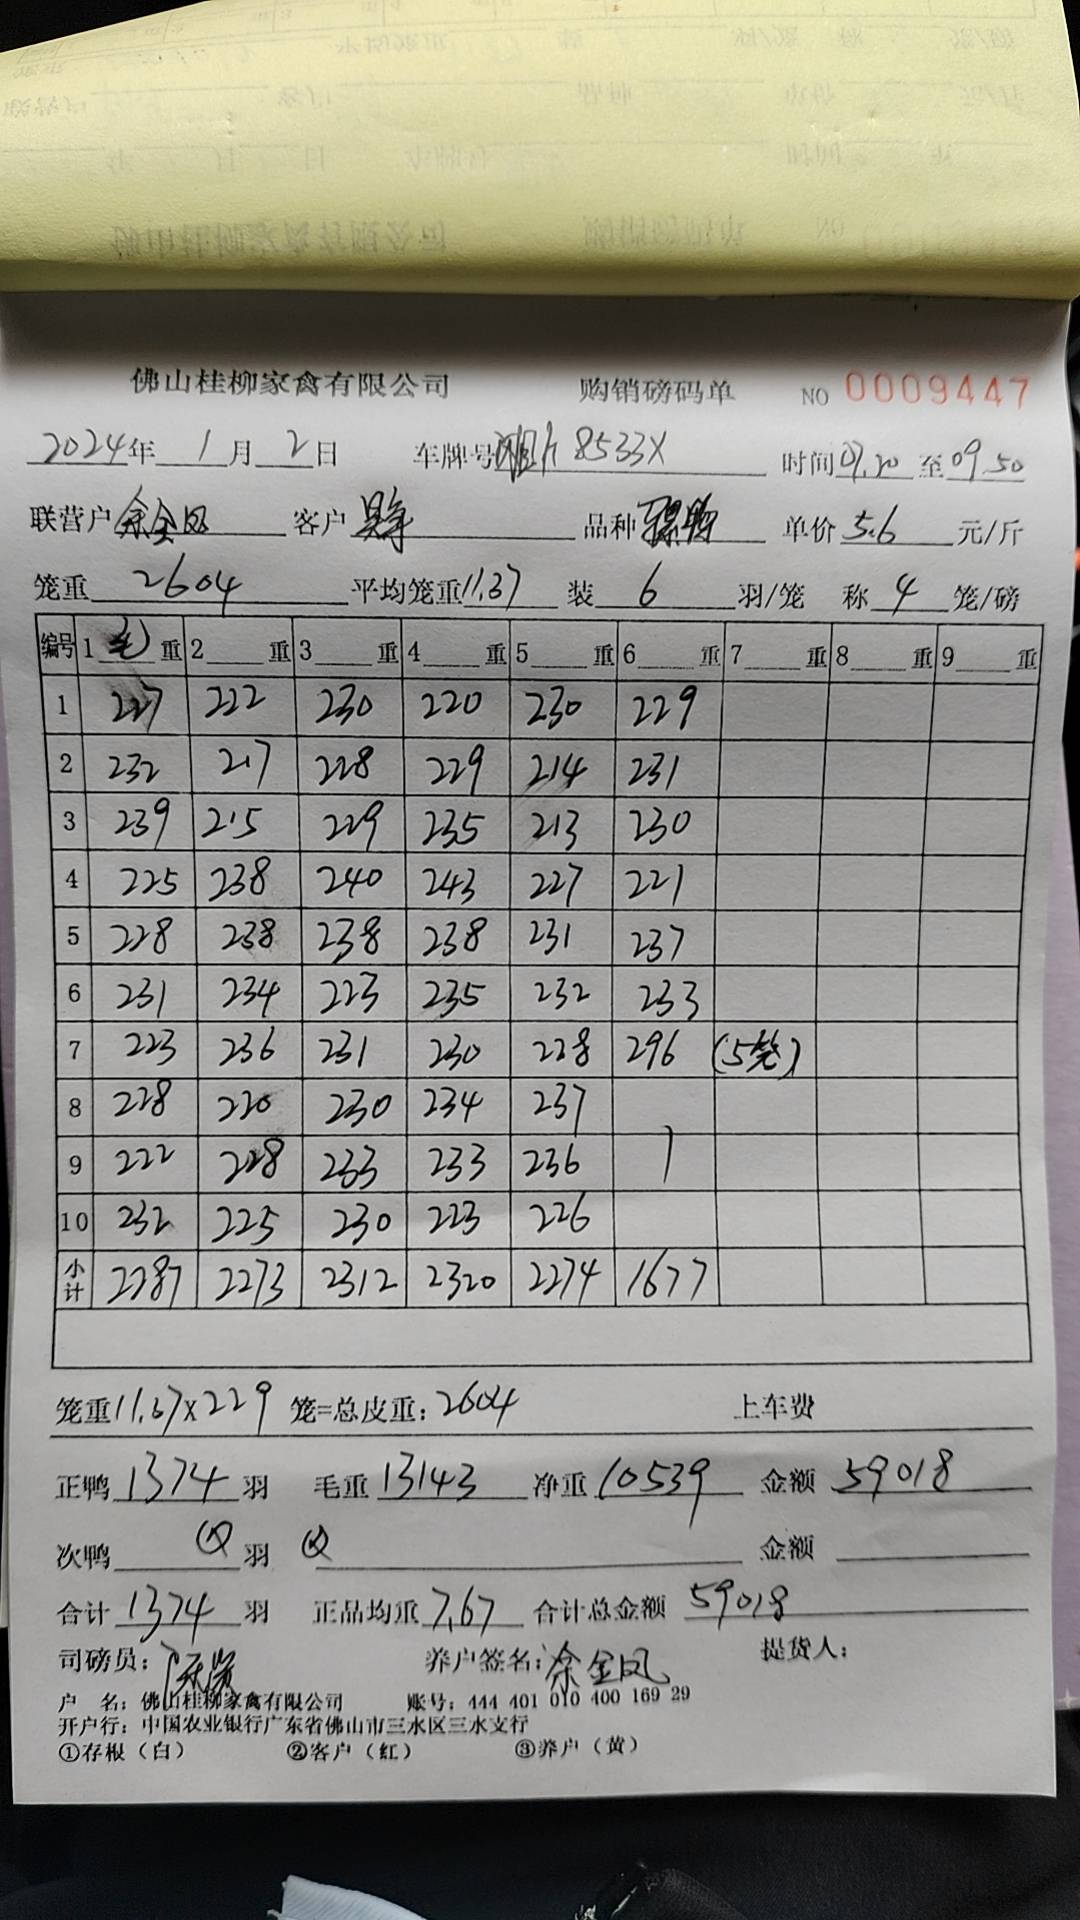 佛山桂柳家禽有限公司 购销磅码单 NO 0009447
2024年 1月 2日 车牌号 8533X 时间07.20至09.50
联营户余金凤 客户 品种 单价5.6元/斤
笼重2604 平均笼重11.37 装6羽/笼 称4笼/磅
编号 1毛重 2重 3重 4重 5重 6重 7重 8重 9重
1 227 222 230 220 230 229
2 232 217 228 229 214 231
3 239 215 229 235 213 230
4 225 238 240 243 227 221
5 228 238 238 238 231 237
6 231 234 223 235 232 233
7 223 236 231 230 228 296 (5笼)
8 228 220 230 234 237
9 222 228 233 233 236
10 232 225 230 223 226
小计 2287 2273 2312 2320 2274 1677
笼重11.37x229笼=总皮重：2604 上车费
正鸭1374羽 毛重13143 净重10539 金额59018
次鸭 羽 金额
合计1374羽 正品均重7.67 合计总金额59018
司磅员： 养户签名：余金凤 提货人：
户 名：佛山桂柳家禽有限公司 账号：444 401 010 400 169 29
开户行：中国农业银行广东省佛山市三水区三水支行
①存根（白） ②客户（红） ③养户（黄）